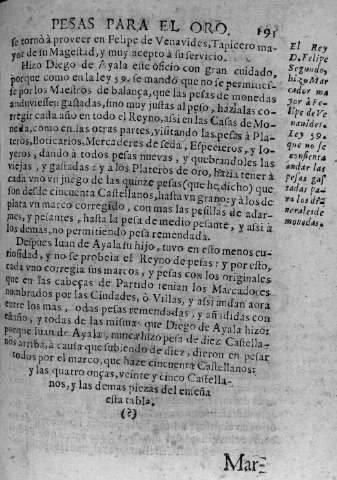 PESAS PARA EL ORO. 191
se tornò à proveer en Felipe de Venavides, Tapicero ma-
yor de su Magestad, y muy acepto à su servicio.
Hizo Diego de Ayala este oficio con gran cuidado,
porque como en la ley 59. se mandò que no se permities-
se por los Maestros de balança, que las pesas de monedas
anduviessen gastadas, sino muy justas al peso, hazialas co-
rregir cada año en todo el Reyno, assi en las Casas de Mo-
neda, como en las otras partes, visitando las pesas à Pla-
teros, Boticarios, Mercaderes de seda, Especieros, y Io-
yeros, dando à todos pesas nuevas, y quebrandoles las
viejas, y gastadas: y à los Plateros de oro, hazia tener à
cada vno vn juego de las quinze pesas (que he dicho) que
son desde cincuenta Castellanos, hasta vn grano: y à los de
plata vn marco corregido, con mas las pesillas de adar-
mes, y pesantes, hasta la pesa de medio pesante, y assi à
los demas, no permitiendo pesa remendada.
Despues Iuan de Ayala su hijo, tuvo en esto menos cu-
riosidad, y no se probeia el Reyno de pesas: y por esto,
cada vno corregia sus marcos, y pesas con los originales
que en las cabeças de Partido tenian los Marcadores
nombrados por las Ciudades, ò Villas, y assi andan aora
entre los mas, odas pesas remendadas, y añadidas con
estaño, y todas de las mismas que Diego de Ayala hizo:
porque Iuan de Ayala, nunca hizo pesa de diez Castella-
nos arriba, à causa que subiendo de diez, dieron en pesar
todos por el marco, que haze cincuenta Castellanos:
y las quatro onças, veinte y cinco Castella-
nos, y las demas piezas del enseña
esta tabla.
(§)
Mar-
El Rey
D. Felipe
Segundo,
hizo Mar
cador ma
yor à Fe-
lipe de Ve
navides.
Ley 59.
que no se
consienta
andar las
pesas gas
tadas pa-
ra los di-
nerales de
monedas.